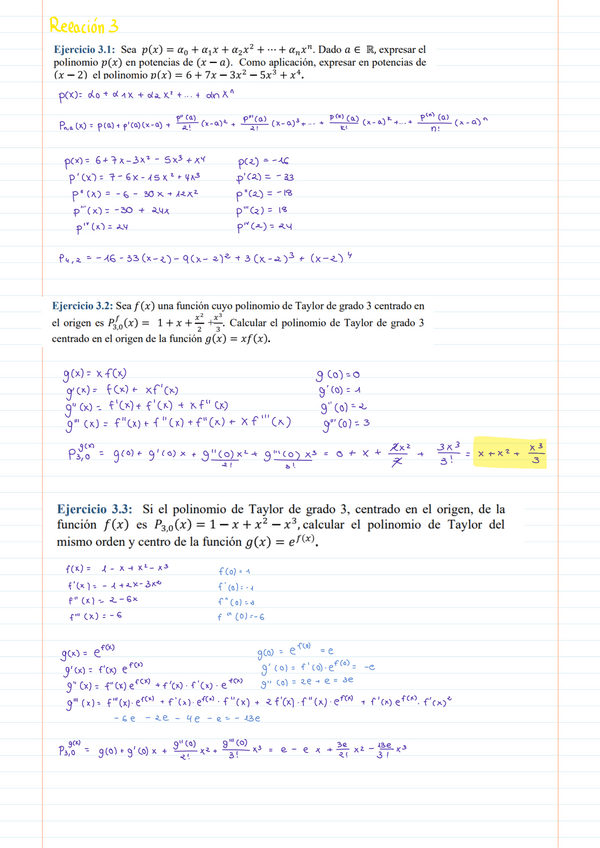 Relación 3
Ejercicio 3.1: Sea p(x) = α₀ + α₁x + α₂x² + ⋯ + αₙxⁿ. Dado a ∈ ℝ, expresar el
polinomio p(x) en potencias de (x − a). Como aplicación, expresar en potencias de
(x − 2) el polinomio p(x) = 6 + 7x − 3x² − 5x³ + x⁴.
p(x) = α₀ + α₁x + α₂x² + ... + αₙxⁿ
Pₙ,ₐ(x) = p(a) + p'(a)(x-a) + p''(a)/2! (x-a)² + p'''(a)/2! (x-a)³ + ... + p^(k)(a)/k! (x-a)^k + ... + p^(n)(a)/n! (x-a)ⁿ
p(x) = 6+7x-3x² - 5x³ + x⁴ p(2) = -16
p'(x) = 7-6x-15x² + 4x³ p'(2) = -33
p''(x) = -6 - 30x + 12x² p''(2) = -18
p'''(x) = -30 + 24x p'''(2) = 18
p^IV(x) = 24 p^IV(2) = 24
P₄,₂ = -16 - 33(x-2) - 9(x-2)² + 3(x-2)³ + (x-2)⁴
Ejercicio 3.2: Sea f(x) una función cuyo polinomio de Taylor de grado 3 centrado en
el origen es P₃,₀^f(x) = 1 + x + x²/2 + x³/3. Calcular el polinomio de Taylor de grado 3
centrado en el origen de la función g(x) = xf(x).
g(x) = x f(x) g(0) = 0
g'(x) = f(x) + xf'(x) g'(0) = 1
g''(x) = f'(x) + f'(x) + x f''(x) g''(0) = 2
g'''(x) = f''(x) + f''(x) + f''(x) + x f'''(x) g'''(0) = 3
P₃,₀^g(x) = g(0) + g'(0)x + g''(0)/2! x² + g'''(0)/3! x³ = 0 + x + 2x²/2 + 3x³/3! = x + x² + x³/3
Ejercicio 3.3: Si el polinomio de Taylor de grado 3, centrado en el origen, de la
función f(x) es P₃,₀(x) = 1 − x + x² − x³, calcular el polinomio de Taylor del
mismo orden y centro de la función g(x) = e^f(x).
f(x) = 1 - x + x² - x³ f(0) = 1
f'(x) = -1 + 2x - 3x² f'(0) = -1
f''(x) = 2 - 6x f''(0) = 2
f'''(x) = -6 f'''(0) = -6
g(x) = e^f(x) g(0) = e^f(0) = e
g'(x) = f'(x) e^f(x) g'(0) = f'(0)·e^f(0) = -e
g''(x) = f''(x) e^f(x) + f'(x)·f'(x)·e^f(x) g''(0) = 2e + e = 3e
g'''(x) = f'''(x)·e^f(x) + f'(x)·e^f(x)·f''(x) + 2f'(x)·f''(x)·e^f(x) + f'(x) e^f(x)·f'(x)²
-6e - 2e - 4e - e = -13e
P₃,₀^g(x) = g(0) + g'(0)x + g''(0)/2! x² + g'''(0)/3! x³ = e - e x + 3e/2! x² - 13e/3! x³